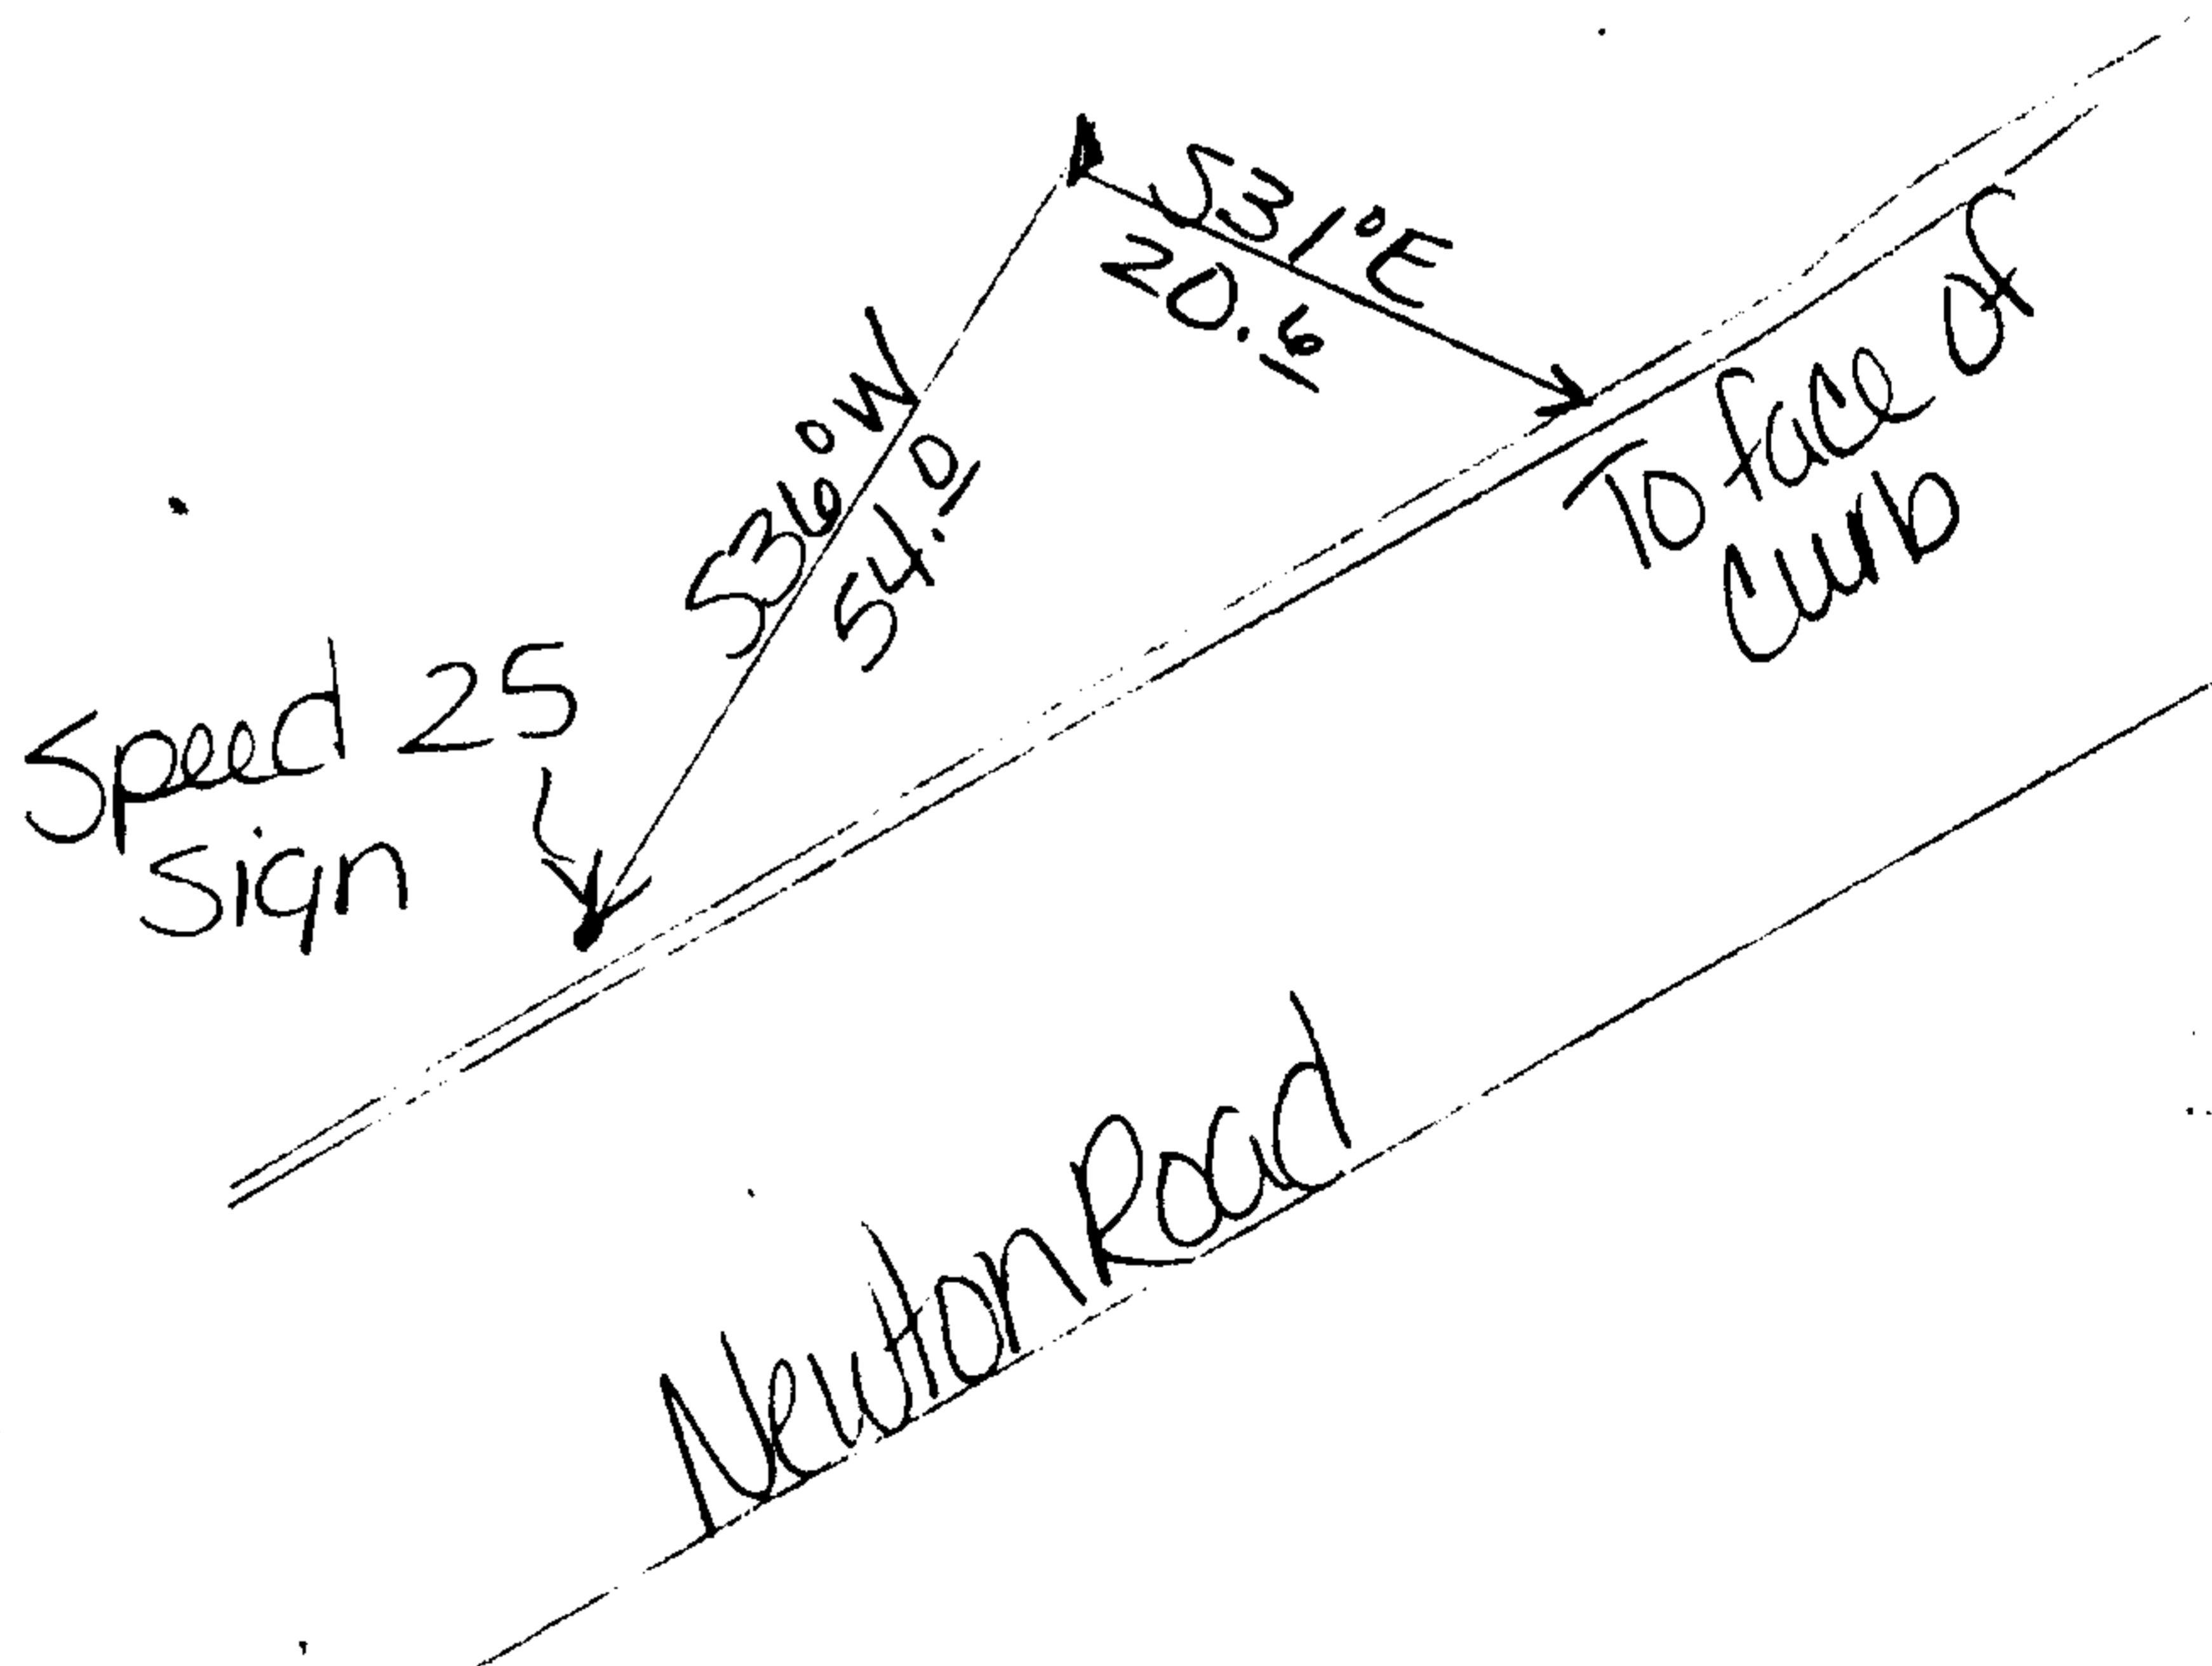 S31°E
20.6
S36°W
54.0
To face of
Curb
Speed 25
Sign
Newton Road